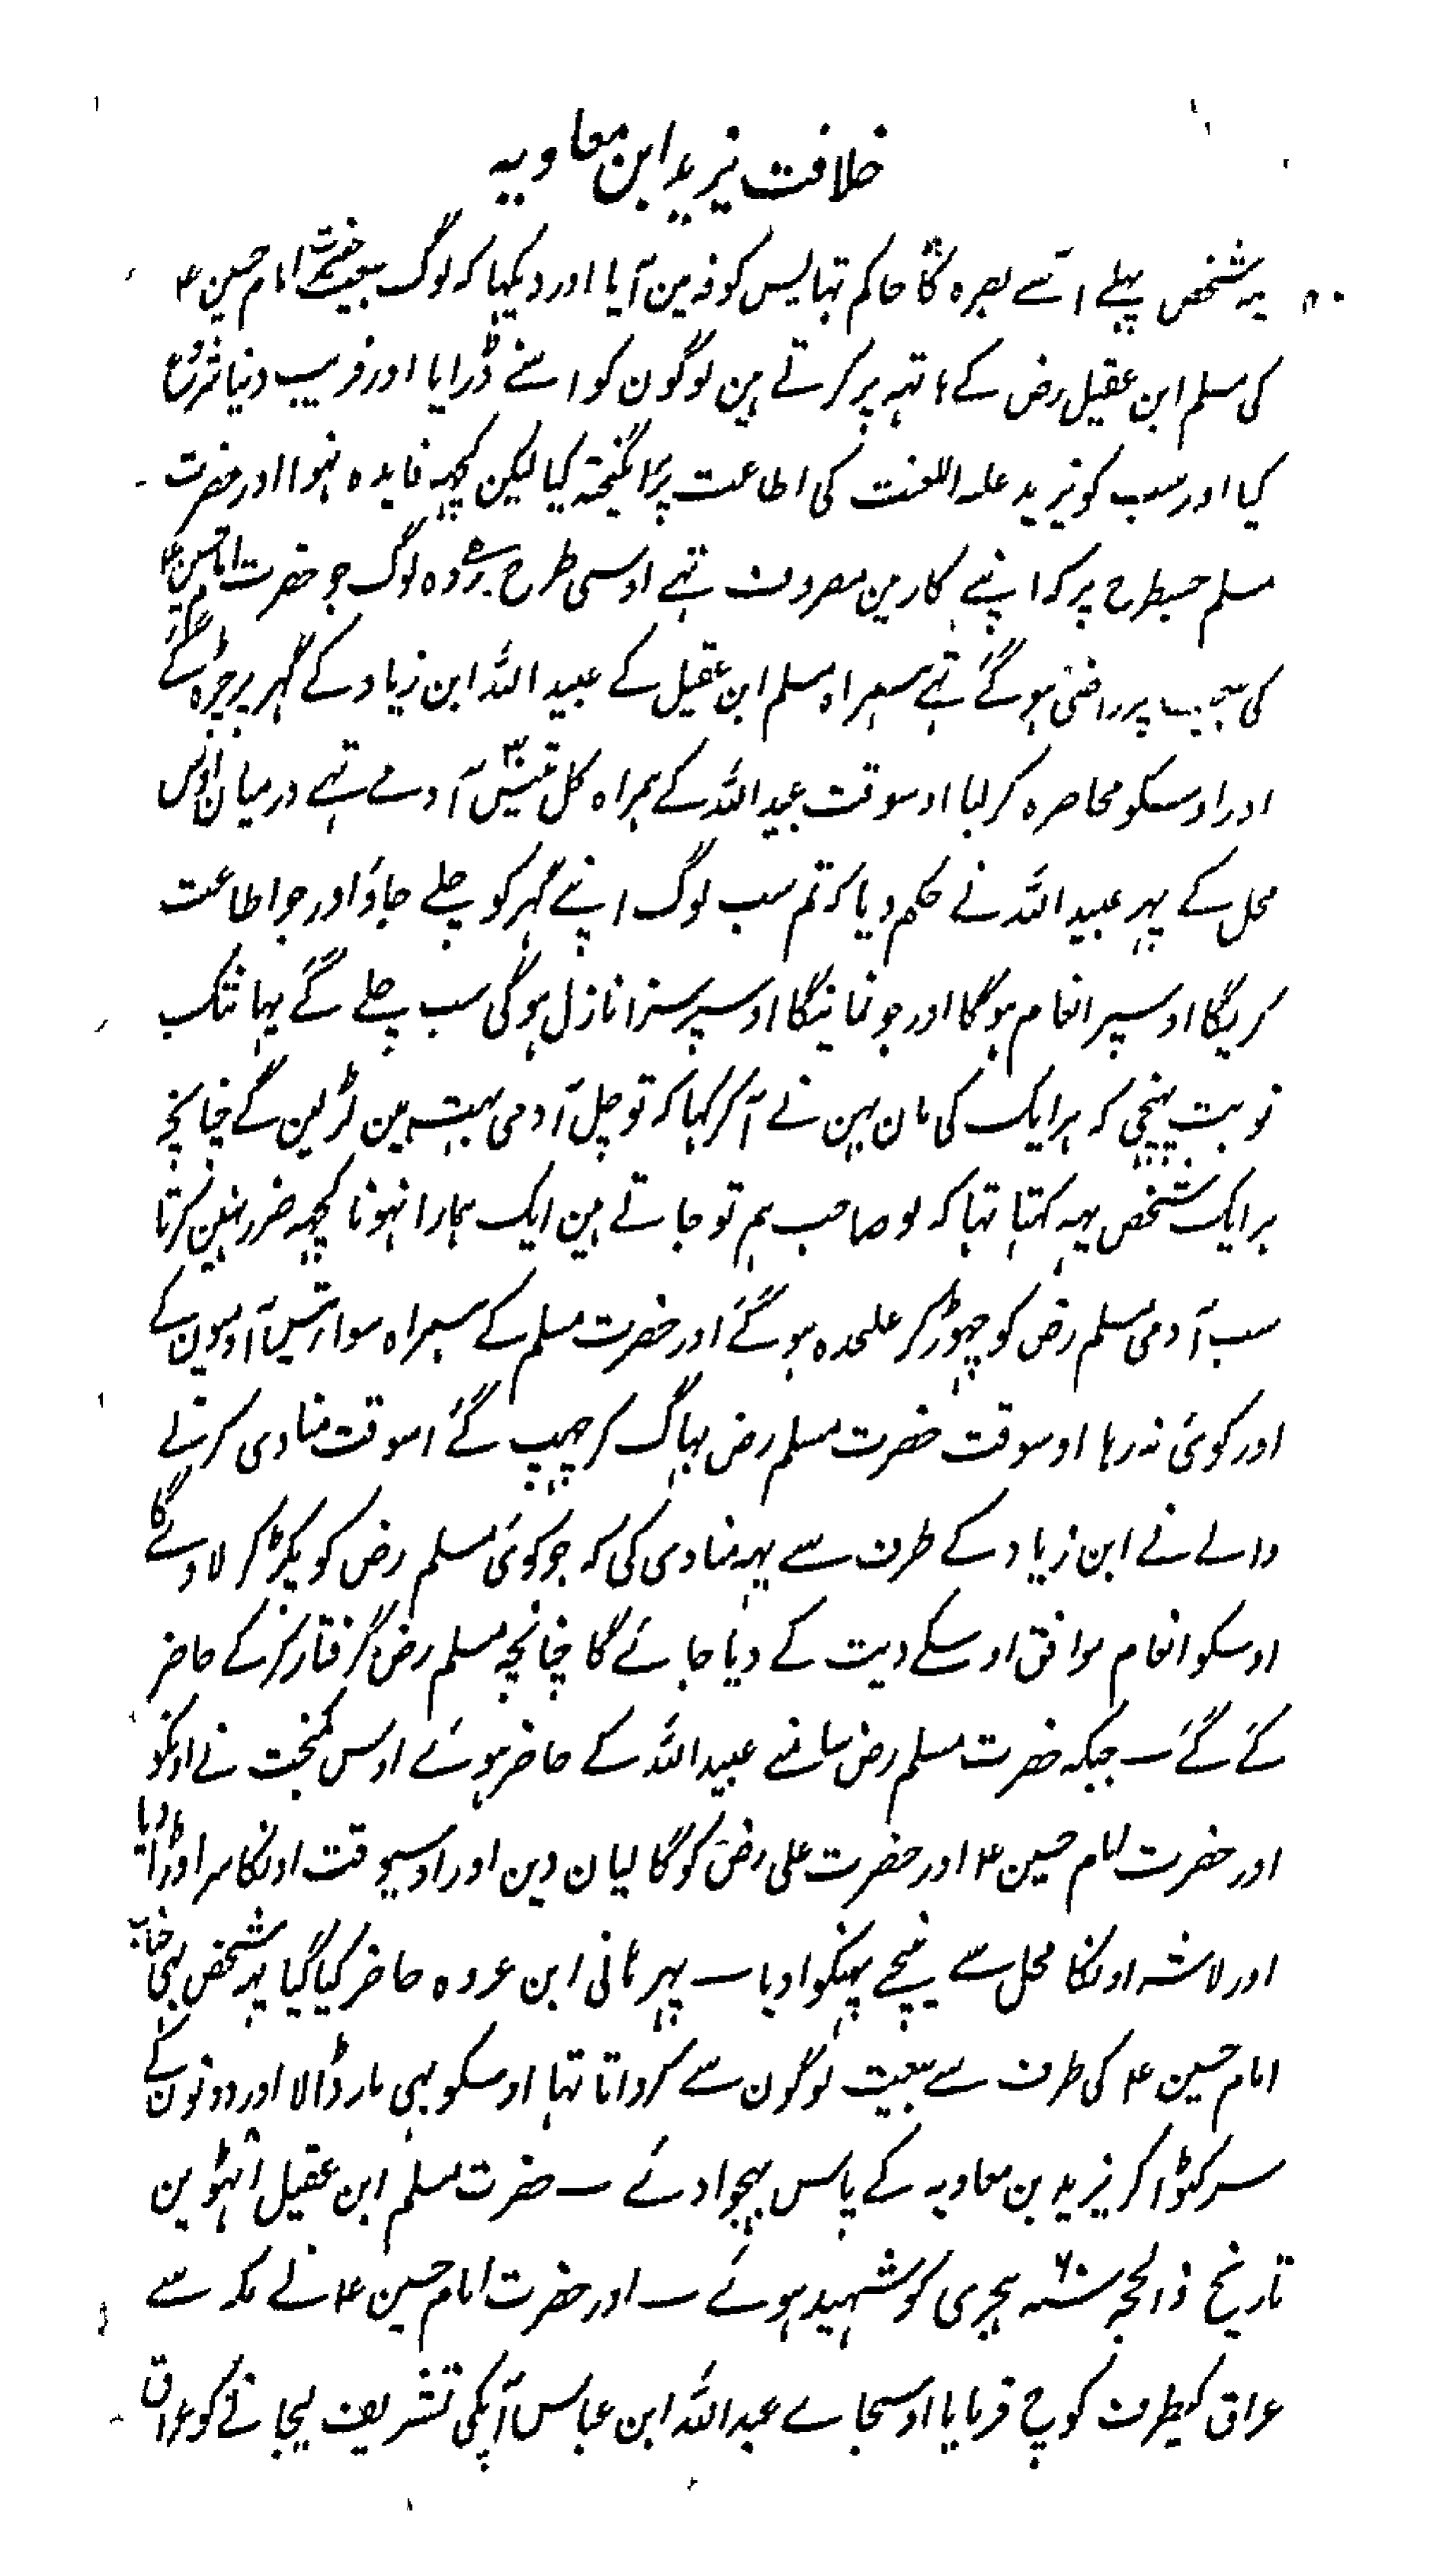 خلافت یزید ابن معاویہ
یہ شخص پہلے اسے بصرہ کا حاکم تہا پس کوفہ مین آیا اور دیکہا کہ لوگ بیعت حضرت امام حسین ع
کی مسلم ابن عقیل رض کے ہاتہہ پر کرتے ہین لوگون کو اسنے ڈرایا اور فریب دینا شروع
کیا اور سب کو یزید علہ اللعنت کی اطاعت پر برانگیختہ کیا لیکن کچہہ فایدہ نہوا اور حضرت
مسلم جسطرح پر کہ اپنے کار مین مصروف تہے اوسی طرح پر رہے وہ لوگ جو حضرت امام حسین ع
کی بیعت پر راضی ہو گئے تہے ہمراہ مسلم ابن عقیل کے عبید اللہ ابن زیاد کے گہر پر چڑہ گئے
اور اوسکو محاصرہ کر لیا اوسوقت عبید اللہ کے ہمراہ کل تیس ۳۰ آدمے تہے درمیان اوس
محل کے پہر عبید اللہ نے حکم دیا کہ تم سب لوگ اپنے گہر کو چلے جاؤ اور جو اطاعت
کریگا اوسپر انعام ہوگا اور جو نمانیگا اوسپر سزا نازل ہوگی سب چلے گے یہانتک
نوبت پہنچی کہ ہر ایک کی مان بہن نے آ کر کہا کہ تو چل آدمی بہت ہین لڑ لین گے چنانچہ
ہر ایک شخص یہہ کہتا تہا کہ لو صاحب ہم تو جاتے ہین ایک ہمارا نہونا کچہہ ضرر نہین کرتا
سب آدمی مسلم رض کو چہوڑ کر علحدہ ہو گئے اور حضرت مسلم کے ہمراہ سوا تیس آدمیون کے
اور کوئی نہ رہا اوسوقت حضرت مسلم رض بہاگ کر چہپ گئے اسوقت منادی کرنے
والے نے ابن زیاد کے طرف سے یہہ منادی کی کہ جو کوئی مسلم رض کو پکڑ کر لاوے گا
اوسکو انعام موافق اوسکے دیت کے دیا جائے گا چنانچہ مسلم رض گرفتار کر کے حاضر
کئے گئے ۔ جبکہ حضرت مسلم رض سامنے عبید اللہ کے حاضر ہوئے اوس کمبخت نے اونکو
اور حضرت امام حسین ع اور حضرت علی رض کو گالیان دین اور اوسیوقت اونکا سر اوڑا دیا
اور لاشہ اونکا محل سے نیچے پہنکوا دیا ۔ پہر ہانی ابن عروہ حاضر کیا گیا یہ شخص بہی جناب
امام حسین ع کی طرف سے بیعت لوگون سے کرواتا تہا اوسکو بہی مار ڈالا اور دونون کے
سر کٹوا کر یزید بن معاویہ کے پاس بہجوا دئے ۔ حضرت مسلم ابن عقیل ۸ اٹہوین
تاریخ ذالحجہ سنہ ۶۰ ہجری کو شہید ہوئے ۔ اور حضرت امام حسین ع نے مکہ سے
عراق کیطرف کوچ فرمایا اوسجاے عبد اللہ ابن عباس آپکی تشریف لیجانے کو عراق